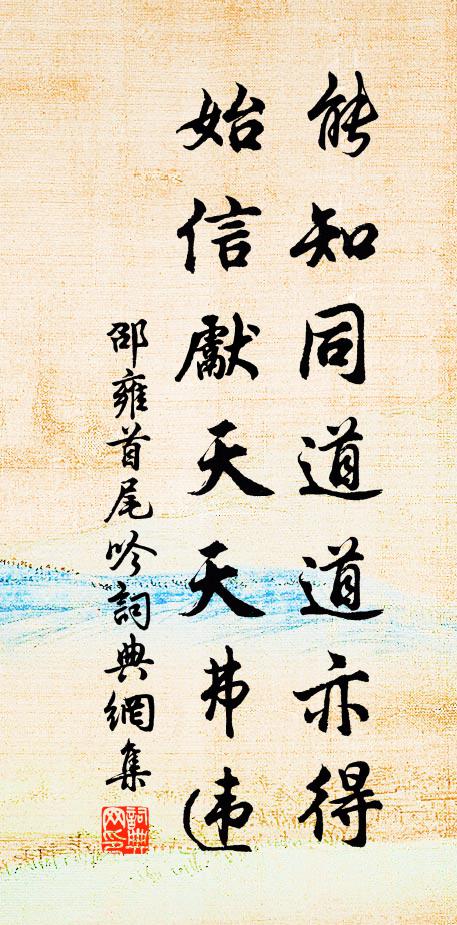 能知同道道亦得
始信獻天天弗違
邵雍首尾吟詞典網集